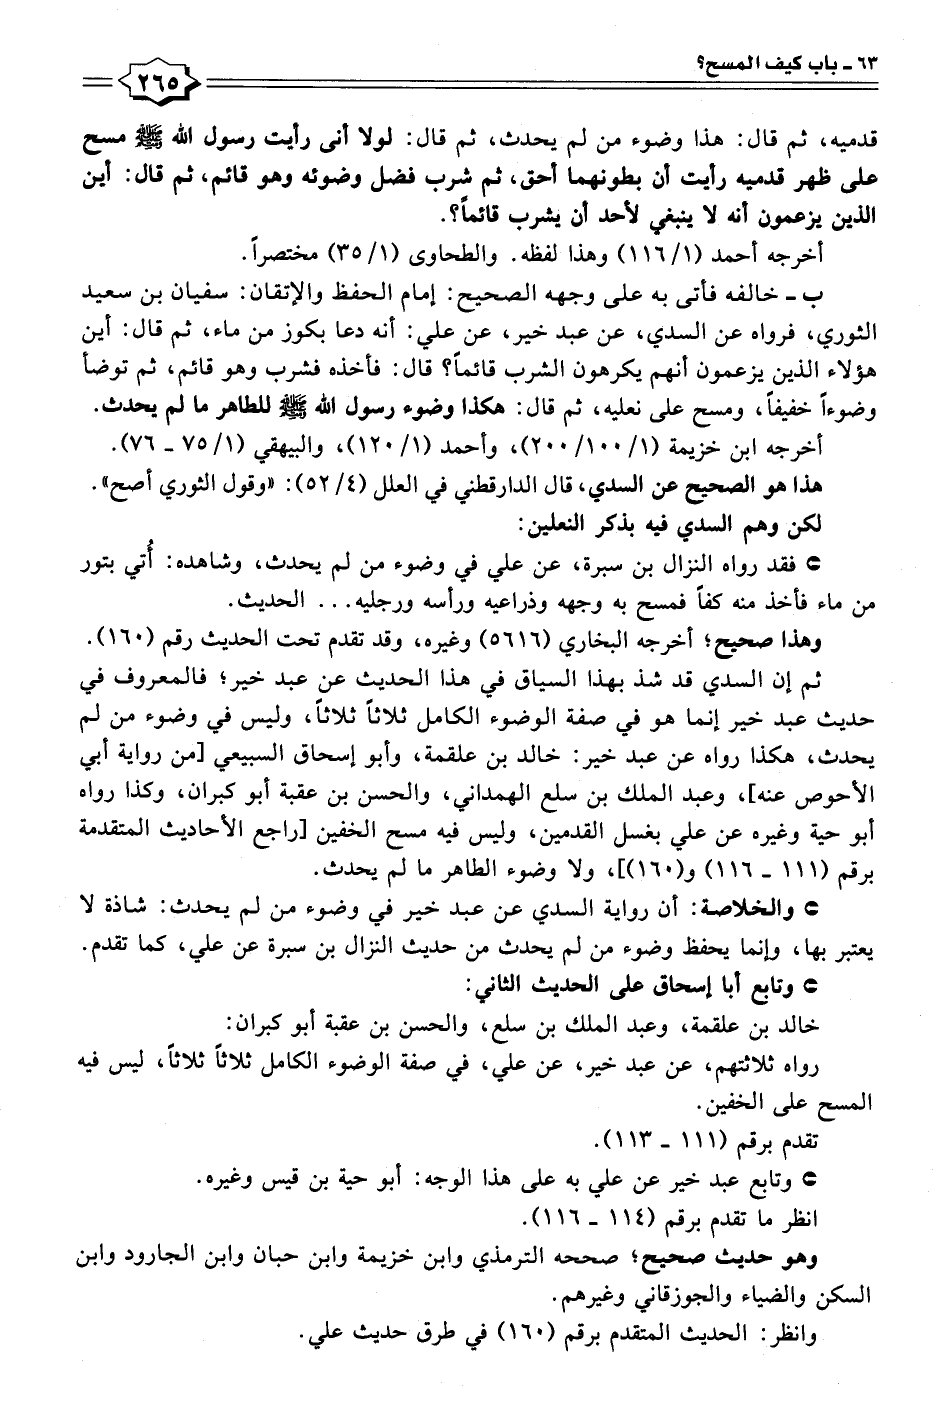 ٦٣ - باب كيف المسح؟
٢٦٥
قدميه، ثم قال: هذا وضوء من لم يحدث، ثم قال: لولا أنى رأيت رسول الله ﷺ مسح
على ظهر قدميه رأيت أن بطونهما أحق، ثم شرب فضل وضوئه وهو قائم، ثم قال: أين
الذين يزعمون أنه لا ينبغي لأحد أن يشرب قائماً؟.
أخرجه أحمد (١/ ١١٦) وهذا لفظه. والطحاوى (١/ ٣٥) مختصراً.
ب - خالفه فأتى به على وجهه الصحيح: إمام الحفظ والإتقان: سفيان بن سعيد
الثوري، فرواه عن السدي، عن عبد خير، عن علي: أنه دعا بكوز من ماء، ثم قال: أين
هؤلاء الذين يزعمون أنهم يكرهون الشرب قائماً؟ قال: فأخذه فشرب وهو قائم، ثم توضأ
وضوءاً خفيفاً، ومسح على نعليه، ثم قال: هكذا وضوء رسول الله ﷺ للطاهر ما لم يحدث.
أخرجه ابن خزيمة (١/ ١٠٠/ ٢٠٠)، وأحمد (١/ ١٢٠)، والبيهقي (١/ ٧٥ - ٧٦).
هذا هو الصحيح عن السدي، قال الدارقطني في العلل (٤/ ٥٢): «وقول الثوري أصح».
لكن وهم السدي فيه بذكر النعلين:
فقد رواه النزال بن سبرة، عن علي في وضوء من لم يحدث، وشاهده: أُتي بتور
من ماء فأخذ منه كفاً فمسح به وجهه وذراعيه ورأسه ورجليه... الحديث.
وهذا صحيح؛ أخرجه البخاري (٥٦١٦) وغيره، وقد تقدم تحت الحديث رقم (١٦٠).
ثم إن السدي قد شذ بهذا السياق في هذا الحديث عن عبد خير؛ فالمعروف في
حديث عبد خير إنما هو في صفة الوضوء الكامل ثلاثاً ثلاثاً، وليس في وضوء من لم
يحدث، هكذا رواه عن عبد خير: خالد بن علقمة، وأبو إسحاق السبيعي [من رواية أبي
الأحوص عنه]، وعبد الملك بن سلع الهمداني، والحسن بن عقبة أبو كبران، وكذا رواه
أبو حية وغيره عن علي بغسل القدمين، وليس فيه مسح الخفين [راجع الأحاديث المتقدمة
برقم (١١١ - ١١٦) و(١٦٠)]، ولا وضوء الطاهر ما لم يحدث.
والخلاصة: أن رواية السدي عن عبد خير في وضوء من لم يحدث: شاذة لا
يعتبر بها، وإنما يحفظ وضوء من لم يحدث من حديث النزال بن سبرة عن علي، كما تقدم.
وتابع أبا إسحاق على الحديث الثاني:
خالد بن علقمة، وعبد الملك بن سلع، والحسن بن عقبة أبو كبران:
رواه ثلاثتهم، عن عبد خير، عن علي، في صفة الوضوء الكامل ثلاثاً ثلاثاً، ليس فيه
المسح على الخفين.
تقدم برقم (١١١ - ١١٣).
وتابع عبد خير عن علي به على هذا الوجه: أبو حية بن قيس وغيره.
انظر ما تقدم برقم (١١٤ - ١١٦).
وهو حديث صحيح؛ صححه الترمذي وابن خزيمة وابن حبان وابن الجارود وابن
السكن والضياء والجوزقاني وغيرهم.
وانظر: الحديث المتقدم برقم (١٦٠) في طرق حديث علي.